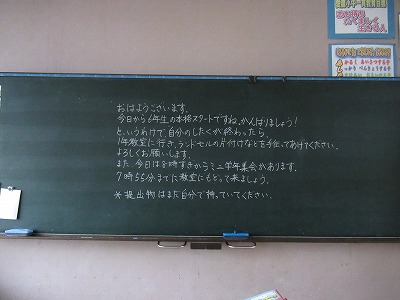 おはようございます。
今日から6年生の本格スタートですね。がんばりましょう！
というわけで自分のしたくが終わったら、
1年教室に行き、ランドセルの片付けなどを手伝ってあげてください。
よろしくお願いします。
また、今日は8時すぎからミニ学年集会があります。
7時55分までに教室にもどって来ましょう。
*提出物はまだ自分で持っていてください。